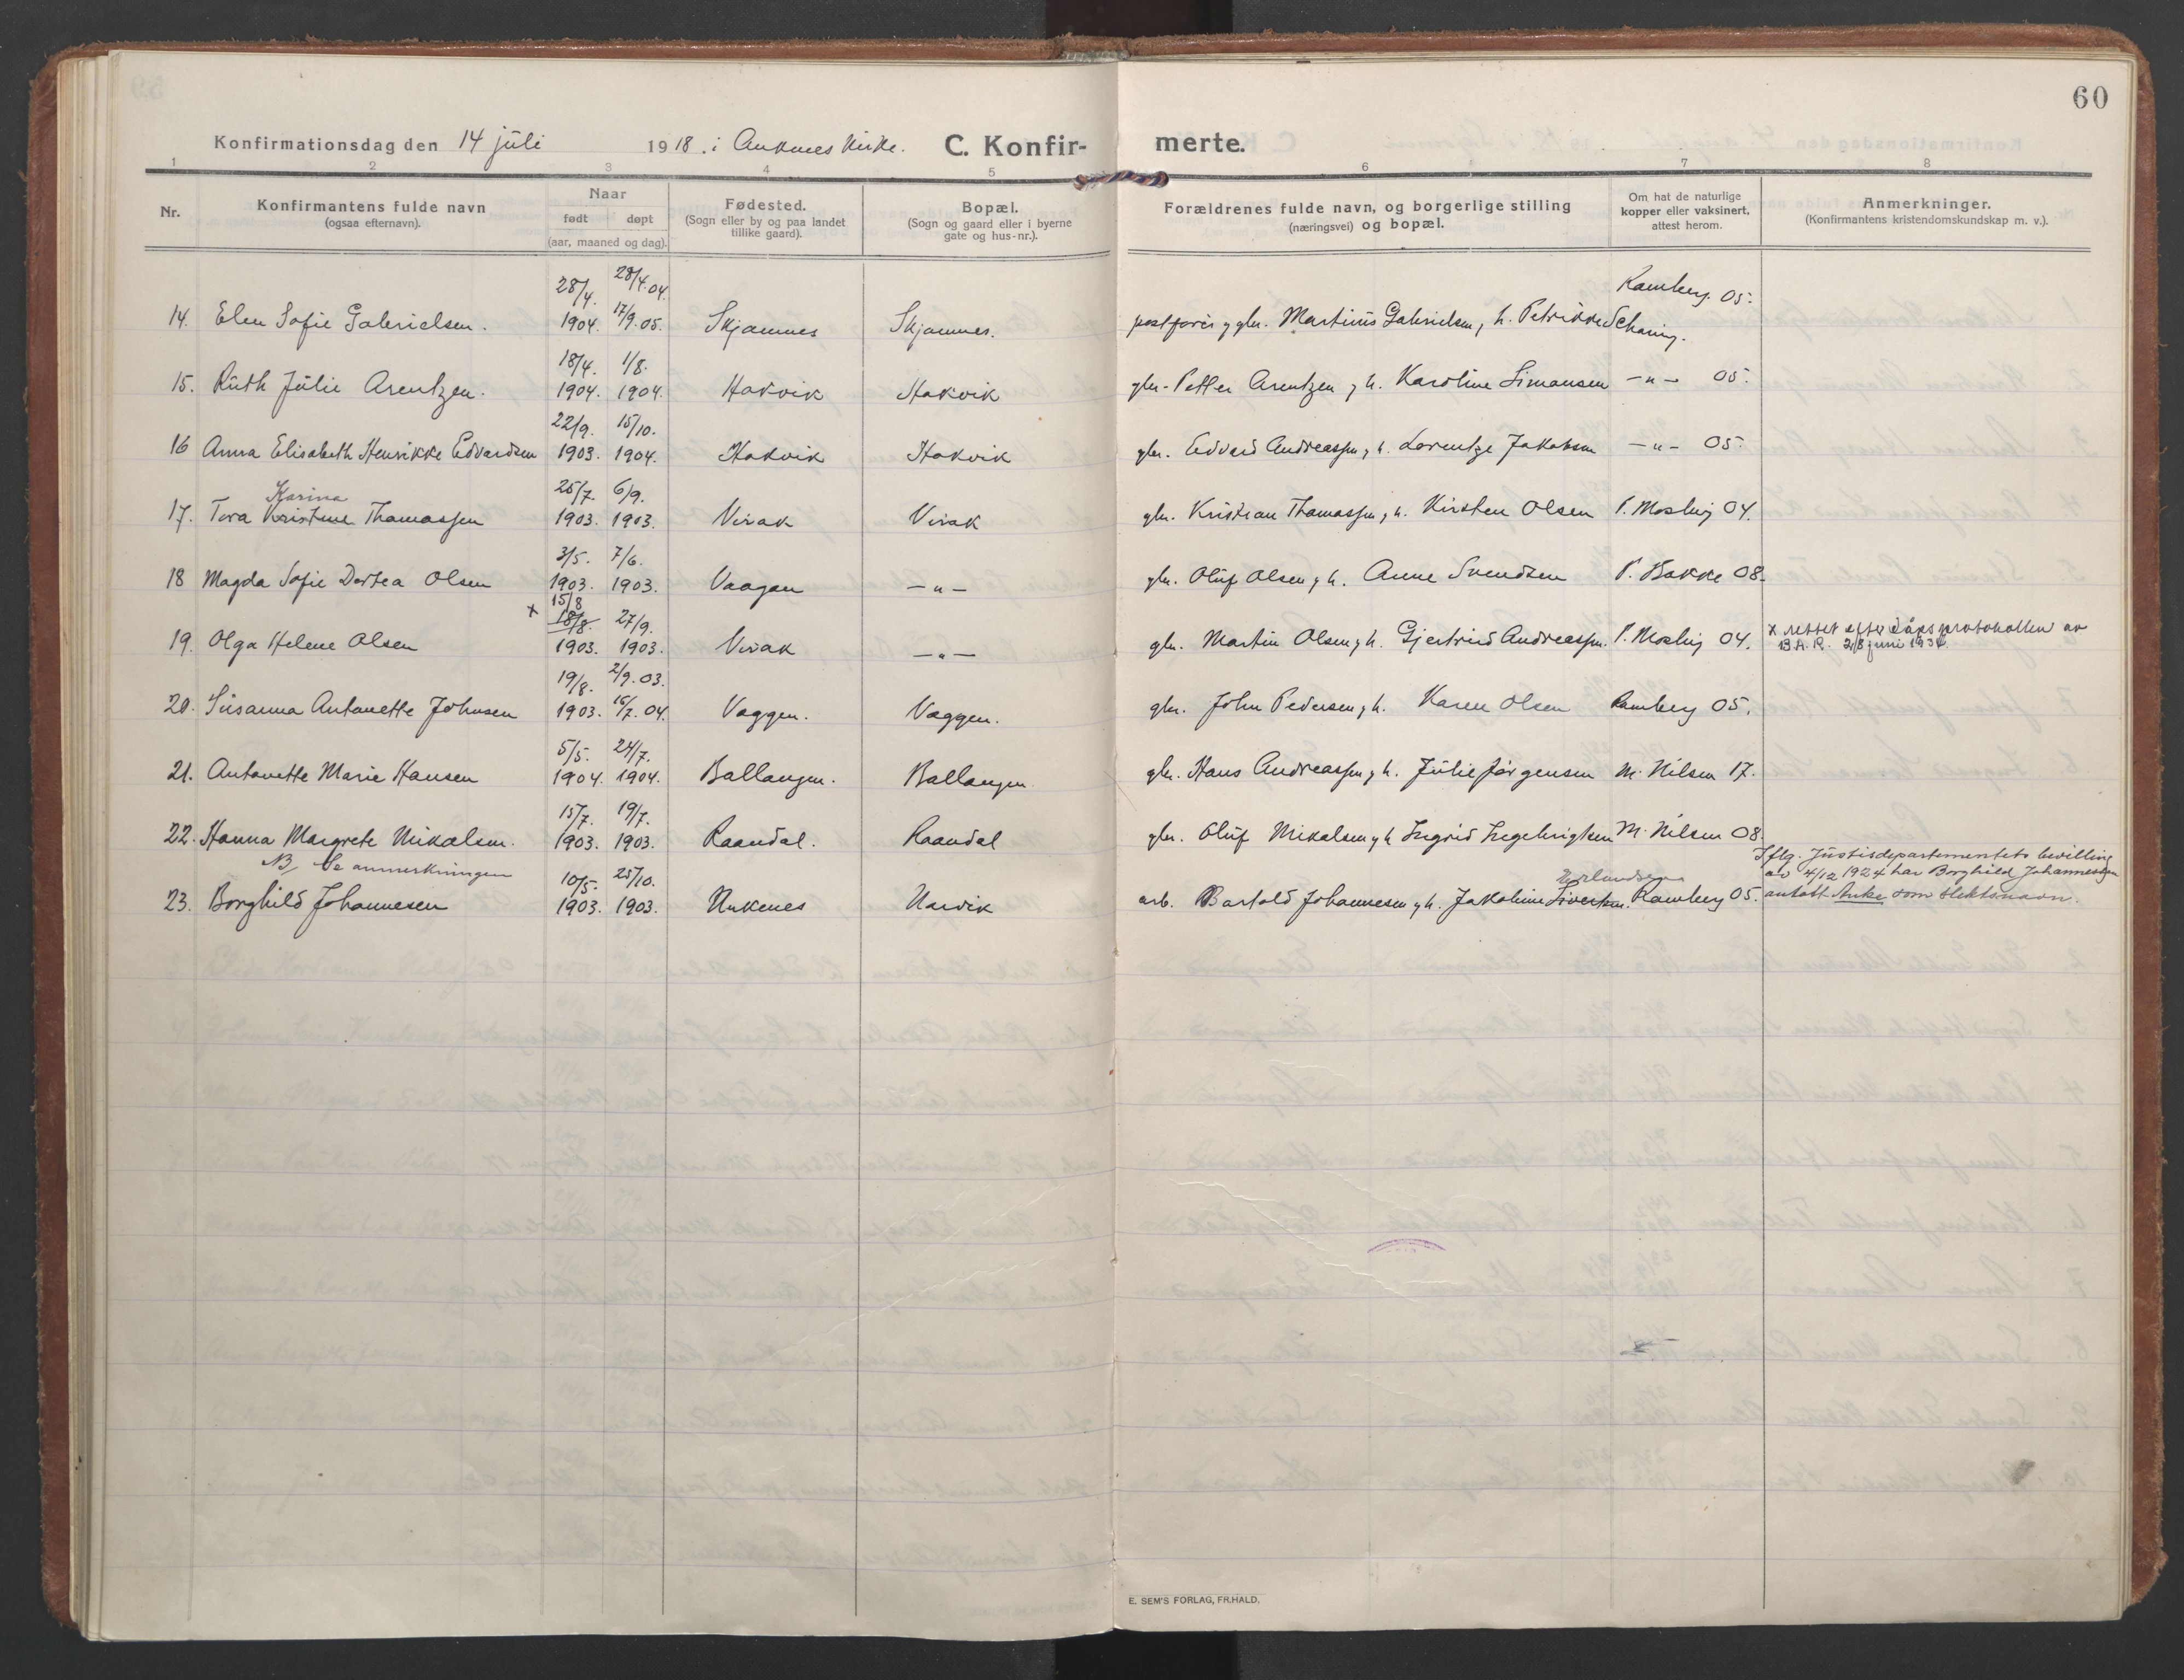 60
Konfirmationsdag den 14 juli 1918. i Ankenes kirke. C. Konfir- merte.
1 2 3 4 5 6 7 8
Nr. Konfirmantens fulde navn (ogsaa efternavn). Naar født døpt (aar, maaned og dag). Fødested. (Sogn eller by og paa landet tillike gaard). Bopæl. (Sogn og gaard eller i byerne gate og hus-nr.). Forældrenes fulde navn, og borgerlige stilling (næringsvei) og bopæl. Om hat de naturlige kopper eller vaksinert, attest herom. Anmerkninger. (Konfirmantens kristendomskundskap m. v.).
28/4. 28/4.04. Ramberg 05.
14. Elen Sofie Gabrielsen. 1904. 17/9.05. Skjamnes Skjamnes. gbr. Martinus Gabrielsen, h. Petrikke Schaning.
18/4. 1/8.
15. Ruth Julie Arentzen. 1904. 1904. Hakvik Hakvik gbr. Petter Arentzen, h. Karoline Simonsen -"- 05.
22/9. 15/10.
16 Anna Elisabeth Henrikke Edvardsen 1903. 1904. Hakvik Hakvik gbr. Edvard Andreassen, h. Lorentze Jakobsen -"- 05.
Karina 25/7. 6/9.
17. Tora Kristine Thomassen 1903. 1903. Virak Virak gbr. Kristian Thomassen, h. Kirsten Olsen P. Mosling 04.
3/5. 7/6.
18 Magda Sofie Dortea Olsen 1903. 1903. Vaagan -"- gbr. Oluf Olsen, h. Anne Svendsen P. Bakke 08.
15/8
x 18/8. 27/9. x rettet efter dåpsprotokollen av
19. Olga Helene Olsen 1903. 1903. Virak -"- gbr. Martin Olsen, h. Gjertrud Andreassen. P. Mosling 04. B.A.R. 28 juni 1934.
19/8. 2/9.03.
20. Susanna Antonette Johnsen 1903. 16/7.04. Vaggen. Vaggen. gbr. John Pedersen, h. Karen Olsen Ramberg 05.
5/5. 24/7.
21. Antonette Marie Hansen 1904. 1904. Ballangen. Ballangen gbr. Hans Andreassen, h. Julie Jørgensen M. Nilsen 17.
15/7. 19/7.
22. Hanna Margrete Mikalsen. 1903. 1903. Raandal. Raandal gbr. Oluf Mikalsen, h. Ingrid Ingebrigtsen M. Nilsen 08.
NB/ Se anmerkningen 10/5. 25/10. Iflg. Justisdepartementets bevilling
av 4/12 1924 har Borghild Johannessen
23. Borghild Johannesen 1903. 1903. Ankenes Narvik arb. Bartold Johannesen, h. Jakobine Sivertsen. Ramberg 05. antatt Anke som slektsnavn.
E. SEM'S FORLAG, FR.HALD.